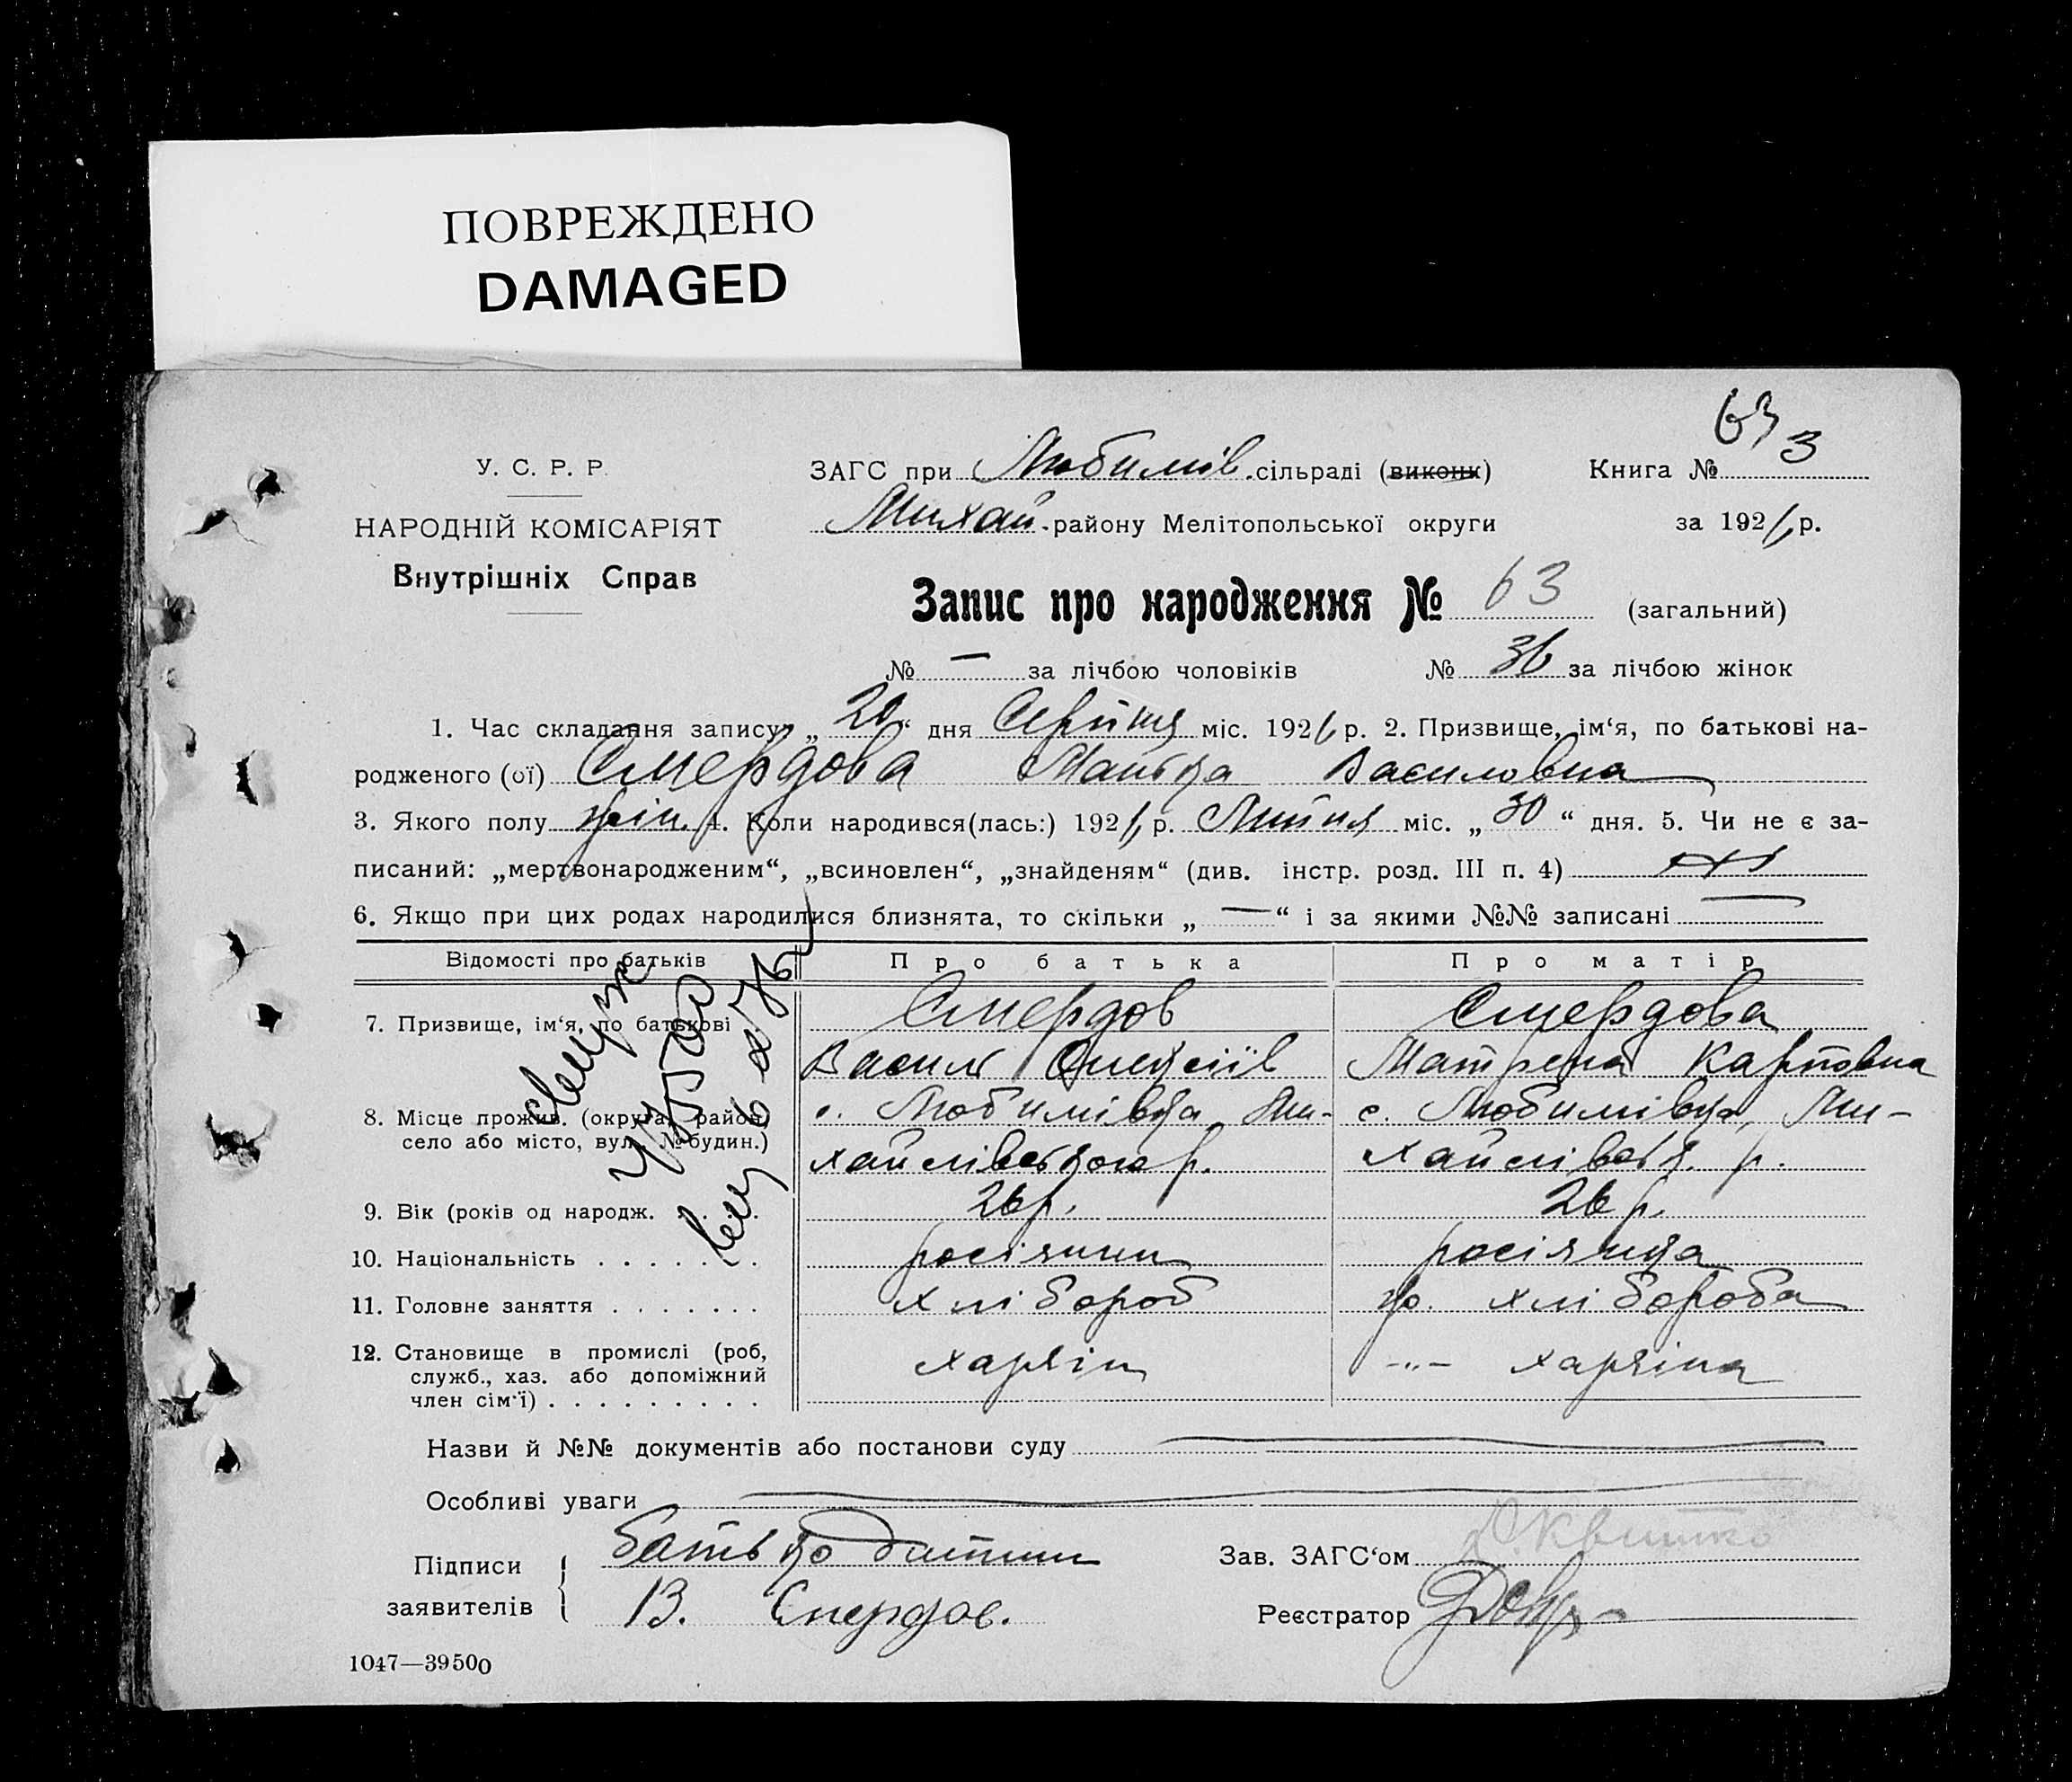 ПОВРЕЖДЕНО
DAMAGED
63
У. С. Р. Р.
НАРОДНІЙ КОМІСАРІЯТ
Внутрішніх Справ
ЗАГС при Любимів. сільраді (виконк)
Михай. району Мелітопольської округи
Книга № 3
за 1926 р.
Запис про народження № 63 (загальний)
№ — за лічбою чоловіків № 36 за лічбою жінок
1. Час складання запису „20“ дня Серпня міс. 1926 р. 2. Призвище, ім‘я, по батькові на-
родженого (ої) Смердова Василовна
3. Якого полу жін. 4. Коли народився(лась:) 1926 р. Липня міс. „30“ дня. 5. Чи не є за-
писаний: „мертвонародженим“, „всиновлен“, „знайденям“ (див. інстр. розд. III п. 4)
6. Якщо при цих родах народилися близнята, то скільки „—“ і за якими №№ записані —
Відомості про батьків Про батька Про матір
7. Призвище, ім‘я, по батькові Смердов Смердова
Василь Матрена Карповна
8. Місце прожив. (округа, район, село або місто, вул., № будин.) с. Любимівка, Ми- с. Любимівка, Ми-
хайлівського р. хайлівськ. р.
9. Вік (років од народж. 26 р. 26 р.
10. Національність росіянин росіянка
11. Головне заняття хлібороб хлібороба
12. Становище в промислі (роб, служб., хаз. або допоміжний член сім‘ї) хазяїн -„- хазяїна
Назви й №№ документів або постанови суду —
Особливі уваги —
Підписи заявителів батько дитини
В. Смердов.
Зав. ЗАГС‘ом Квитко
Реєстратор
1047—39500